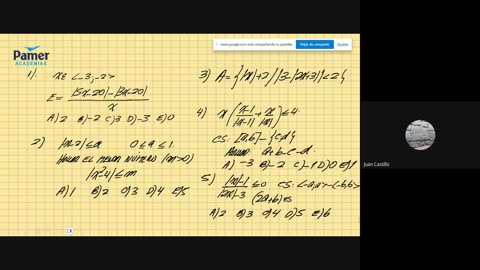 meet.google.com está compartiendo tu pantalla.
Dejar de compartir
Ocultar
Pamer
ACADEMIAS
1) x∈<-3;-2>
E= |5x-20|-|3x-20|
x
A) 2 B)-2 C) 3 D)-3 E) 0
2) |x-2|≤a 0≤a≤1.
HALLAR EL MENOR NÚMERO (m>0)
|x²-4|≤m
A) 1 B) 2 C) 3 D) 4 E) 5
3) A={|x|+2/|3-|2x+3||<2}
4) x(x-1/|x-1|+x/|x|)≤4
CS: [a,b]-{c,d}
HALLAR: a+b-c-d.
A) -3 B)-2 C)-1 D) 0 E) 1
5) |x|-1/|2x|-3≤0 CS: <-a,a>-<-b,b>
(2a+b) es
A) 2 B) 3 C) 4 D) 5 E) 6
Juan Castillo